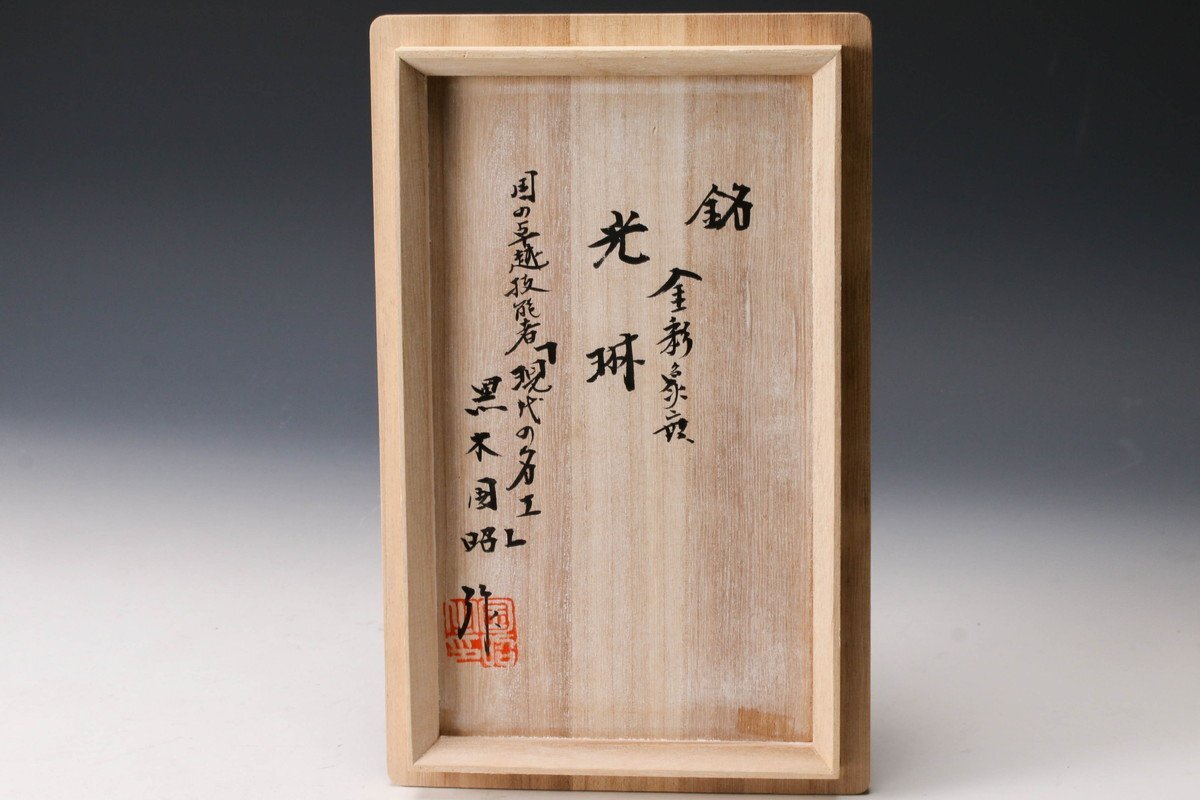 銘
金彩象嵌
光琳
国の卓越技能者「現代の名工」
黒木国昭 作